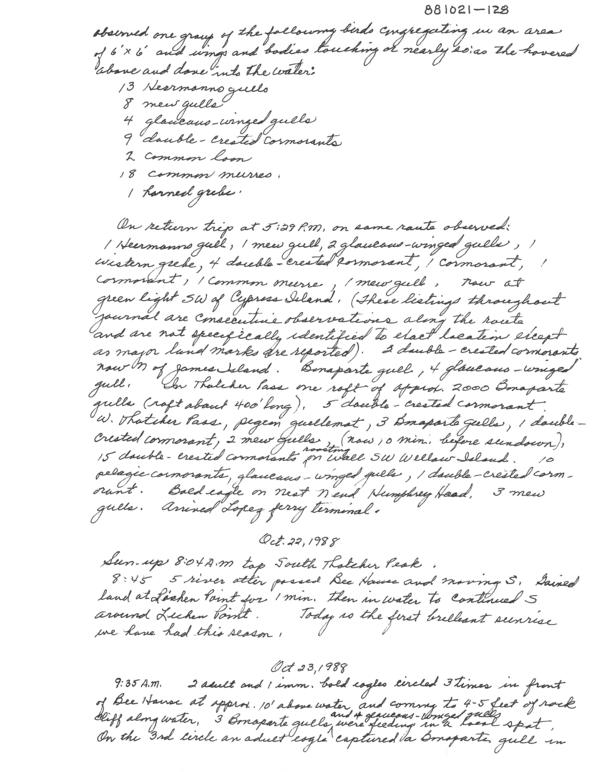 881021-128
observed one group of the following birds congregating in an area
of 6'x6' and wings and bodies touching or nearly so: as the hovered
above and done into the water:
13 Heermanns gulls
8 mew gulls
4 glaucous-winged gulls
9 double-crested cormorants
2 common loon
18 common murres.
1 horned grebe.
On return trip at 5:29 P.M. on same route observed:
1 Heermanns gull, 1 mew gull, 2 glaucous-winged gulls, 1
western grebe, 4 double-crested cormorant, 1 cormorant, 1
cormorant, 1 common murre, 1 mew gull. now at
green light SW of Cypress Island. (These listings throughout
journal are consecutive observations along the route
and are not specifically identified to exact location except
as major land marks are reported). 2 double-crested cormorants
now N of James Island. Bonaparte gull, 4 glaucous-winged
gull. In Thatcher Pass one raft of approx. 2000 Bonaparte
gulls (raft about 400' long). 5 double-crested cormorant
W. Thatcher Pass, pigeon guillemot, 3 Bonaparte gulls, 1 double-
crested cormorant, 2 mew gulls, (now 10 min. before sundown),
15 double-crested cormorants roosting on wall SW Willow Island. 10
pelagic cormorants, glaucous-winged gulls, 1 double-crested corm-
orant. Bald eagle on nest N end Humphrey Head. 3 mew
gulls. Arrived Lopez ferry terminal.
Oct. 22, 1988
Sun-up 8:04 A.M top South Thatcher Peak.
8:45 5 river otter passed Bee House and moving S. Gained
land at Lichen Point for 1 min. then in water to continued S
around Lichen Point. Today is the first brilliant sunrise
we have had this season.
Oct 23, 1988
9:35 A.M. 2 adult and 1 imm. bald eagles circled 3 times in front
of Bee House at approx. 10' above water and coming to 4-5 feet of rock
cliff along water. 3 Bonaparte gulls and 4 glaucous-winged gulls were feeding in a local spot.
On the 3rd circle an adult eagle captured a Bonaparte gull in